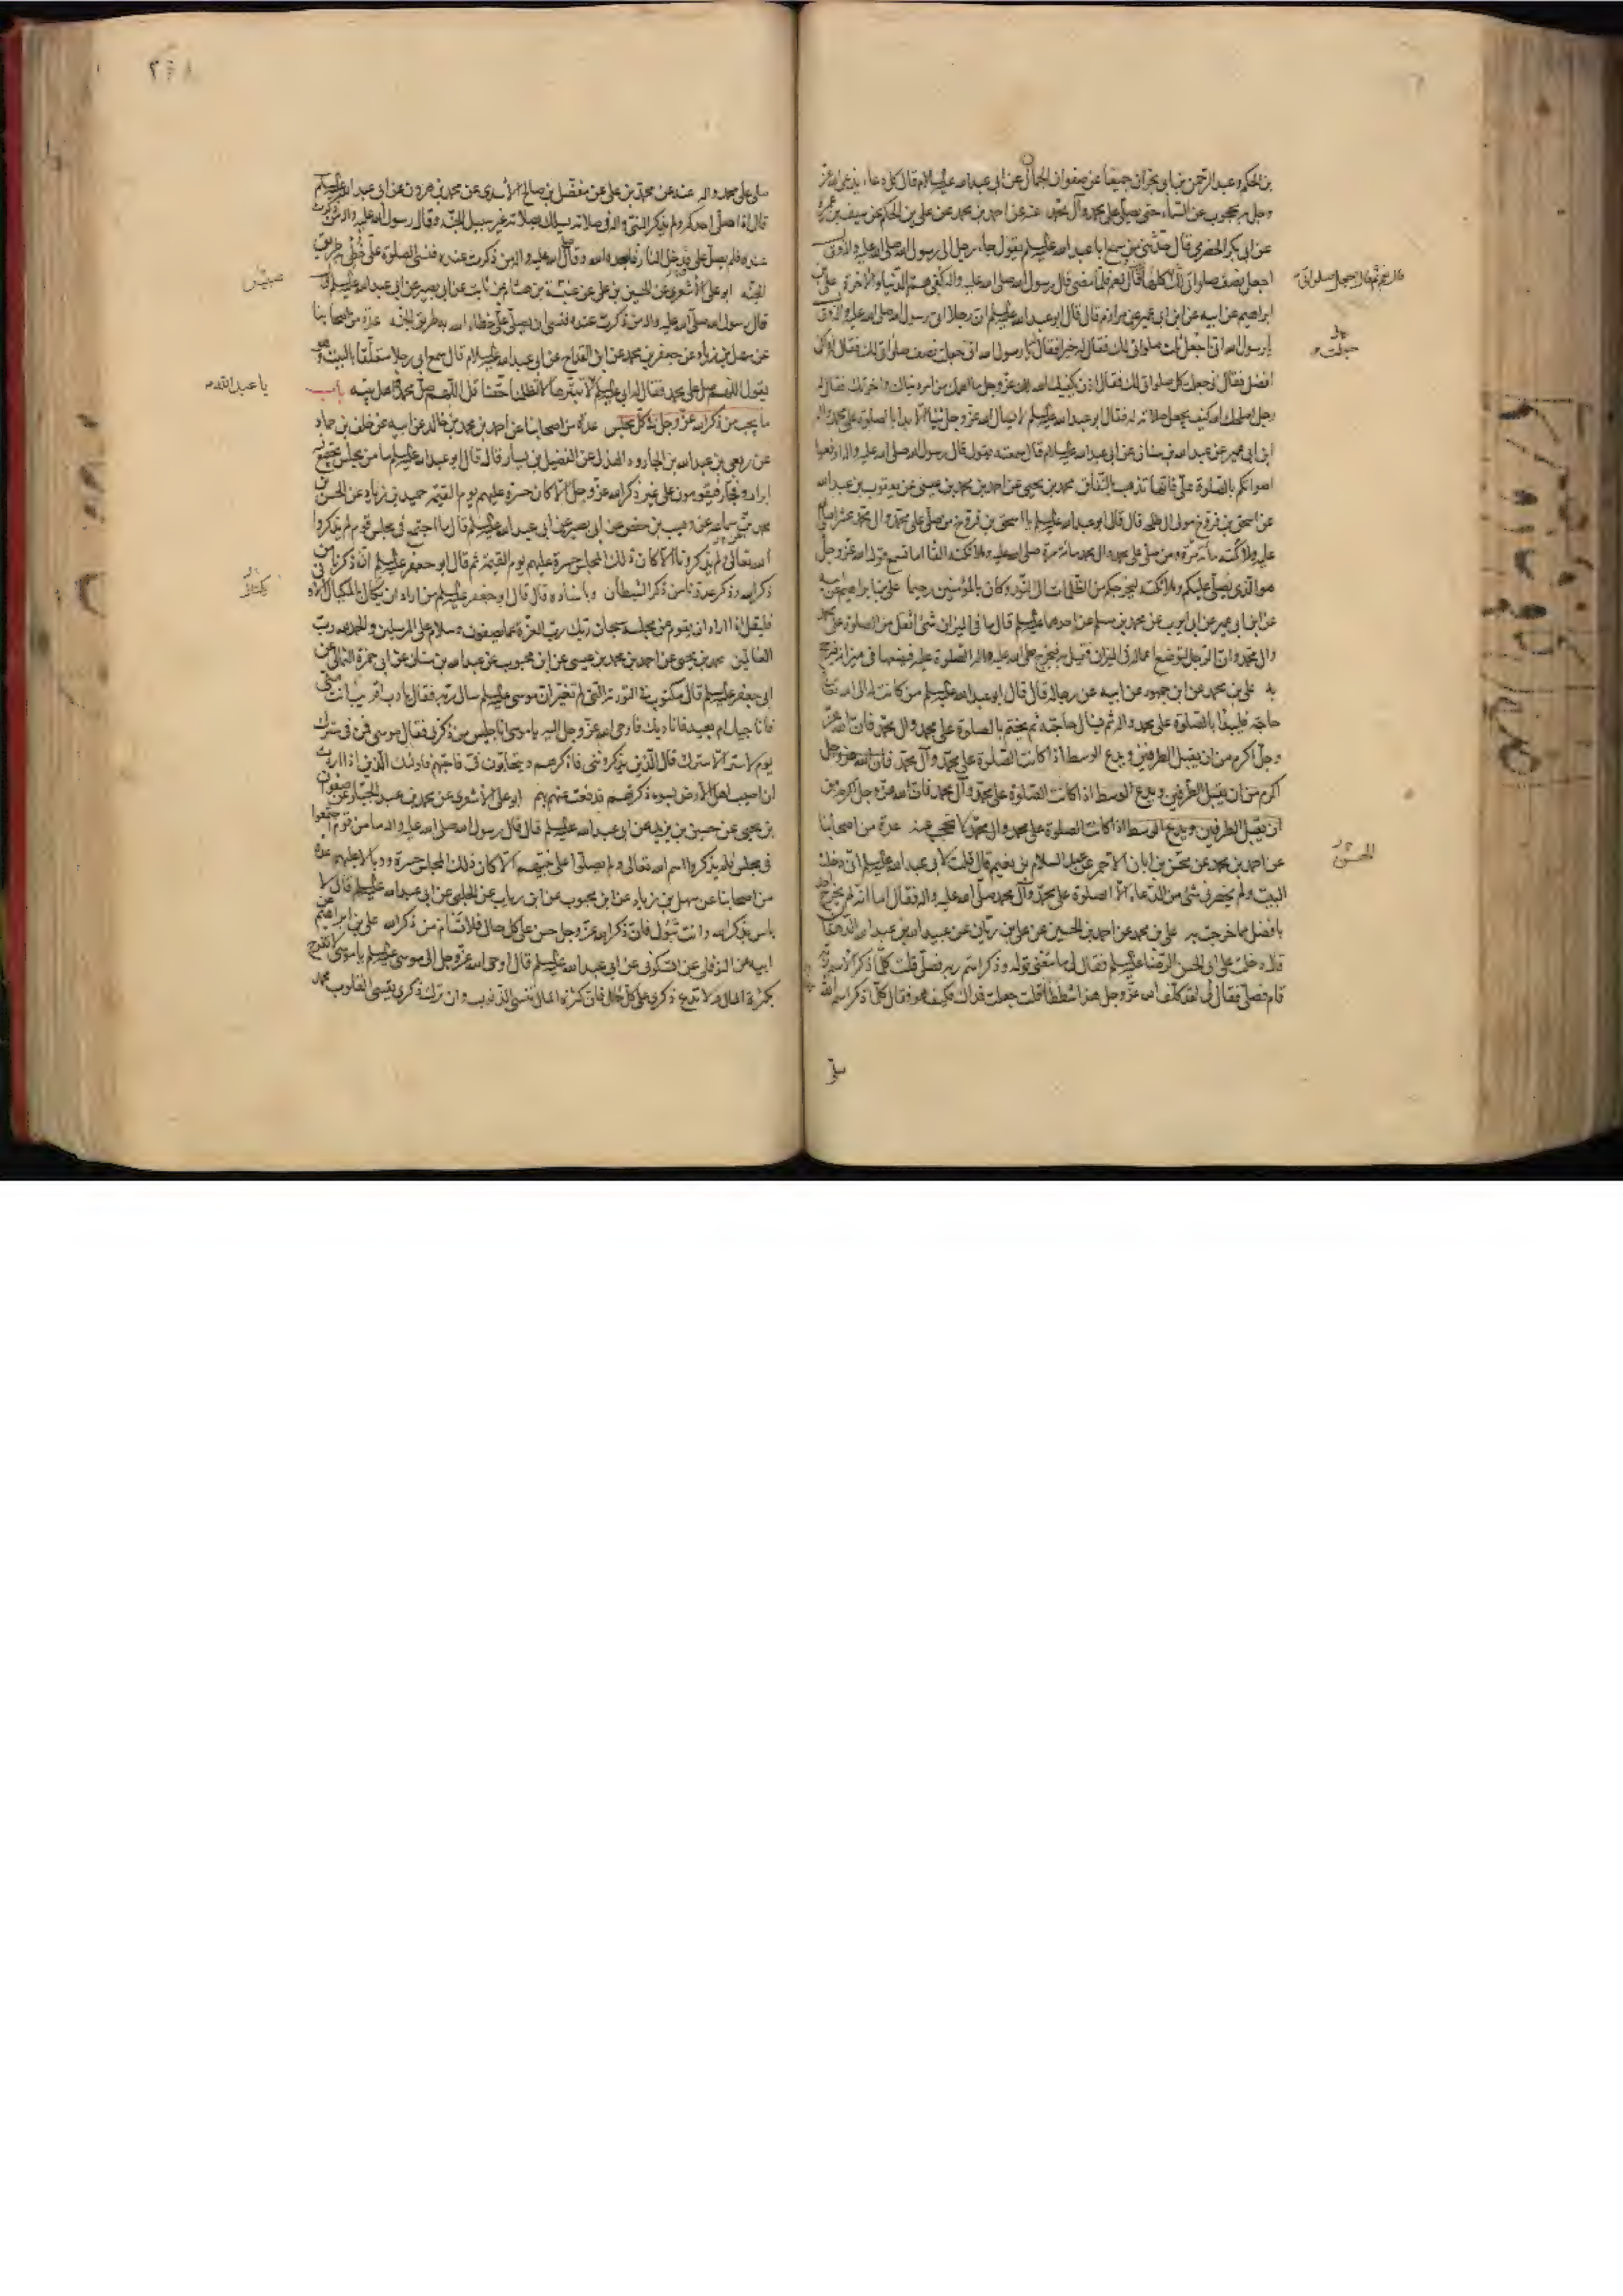 بن الحكم وعبد الرحمن بن ابى نجران جميعا عن صفوان الجمال عن ابى عبد الله عليه السلام قال كل دعاء يدعى الله عز
وجل به محجوب عن السماء حتى يصلى على محمد وآل محمد عنه عن احمد بن محمد عن على بن الحكم عن سيف بن عميرة
عن ابى بكر الحضرمى قال حدثنى من سمع ابا عبد الله عليه السلم يقول جاء رجل الى رسول الله صلى الله عليه واله وق
اجعل نصف صلواتى لك كلها قال نعم فلما مضى قال رسول الله صلى الله عليه واله كفى هم الدنيا والاخرة على بن
ابراهيم عن ابيه عن ابن ابى عمير عن مرازم قال قال ابو عبد الله عليه السلم ان رجلا اتى رسول الله صلى الله عليه واله وق
يا رسول الله انى اجعل ثلث صلواتى لك فقال له خيرا فقال يا رسول الله انى جعلت نصف صلواتى لك فقال له ذاك
افضل فقال انى جعلت كل صلواتى لك فقال اذن يكفيك الله عز وجل ما اهمك من امر دنياك واخرتك فقال له
رجل اصلحك الله كيف يجعل صلاته له فقال ابو عبد الله عليه السلم لا يسال الله عز وجل شيئا الا بدا بالصلوة على محمد واله
ابن ابى عمير عن عبد الله بن سنان عن ابى عبد الله عليه السلام قال سمعته يقول قال رسول الله صلى الله عليه واله ارفعوا
اصواتكم بالصلوة على فانها تذهب بالنفاق محمد بن يحيى عن احمد بن محمد بن عيسى عن يعقوب بن عبد الله
عن اسحق بن فروخ مولى ال طلحه قال قال ابو عبد الله عليه السلم يا اسحق بن فروخ من صلى على محمد وال محمد عشرا صلى الله
عليه وملائكته مائة مرة ومن صلى على محمد وال محمد مائة مرة صلى الله عليه وملائكته الفا اما تسمع قول الله عز وجل
هو الذى يصلى عليكم وملائكته ليخرجكم من الظلمات الى النور وكان بالمؤمنين رحيما على بن ابراهيم عن ابيه
عن ابن ابى عمير عن ابى ايوب عن محمد بن مسلم عن احدهما عليه السلم قال ما فى الميزان شئ اثقل من الصلوة على محمد
وال محمد وان الرجل لتوضع اعماله فى الميزان فتميل به فيخرج صلى الله عليه واله الصلوة عليه فيضعها فى ميزانه فيرجح
به على بن محمد عن ابن جمهور عن ابيه عن رجاله قال قال ابو عبد الله عليه السلم من كانت له الى الله
حاجة فليبدا بالصلوة على محمد واله ثم يسال حاجته ثم يختم بالصلوة على محمد وال محمد فان الله عز
وجل اكرم من ان يقبل الطرفين ويدع الوسط اذا كانت الصلوة على محمد وآل محمد فان الله عز وجل
اكرم من ان يقبل الطرفين ويدع الوسط اذا كانت الصلوة على محمد وآل محمد فان الله عز وجل اكرم من
ان يقبل الطرفين ويدع الوسط اذا كانت الصلوة على محمد وال محمد لا تحجب عنه عدة من اصحابنا
عن احمد بن محمد عن محسن بن ابان الاحمر عن عبد السلام بن نعيم قال قلت لابى عبد الله عليه السلم انى دخلت
البيت ولم يحضرنى شئ من الدعاء الا الصلوة على محمد وآل محمد صلى الله عليه واله فقال اما انه لم يخرج احد
بافضل مما خرجت به على بن محمد عن احمد بن الحسين عن على بن ريان عن عبيد الله بن عبد الله الدهقان
قال دخلت على ابى الحسن الرضا عليه السلم فقال لى ما معنى قوله وذكر اسم ربه فصلى قلت كلما ذكر اسم ربه
قام فصلى فقال لى لقد كلف الله عز وجل هذا شططا قلت جعلت فداك فكيف هو فقال كلما ذكر اسم الله
صلى
جعلت
المحسن
صلى على محمد واله عنه عن محمد بن على عن مفضل بن صالح الاسدى عن محمد بن هرون عن ابى عبد الله عليه السلم
قال اذا صلى احدكم ولم يذكر النبى واله فى صلاته يسلك بصلاته غير سبيل الجنة وقال رسول الله عليه واله من ذكرت
عنده فلم يصل على دخل النار فابعده الله وقال صلى الله عليه واله من ذكرت عنده فنسى الصلوة على خطئ به طريق
الجنة ابو على الاشعرى عن الحسين بن على عن عبيسة بن هشام عن ثابت عن ابى بصير عن ابى عبد الله عليه السلم ق
قال رسول الله صلى الله عليه واله من ذكرت عنده فنسى ان يصلى على خطاء الله به طريق الجنة عدة من اصحابنا
عن سهل بن زياد عن جعفر بن محمد عن ابن القداح عن ابى عبد الله عليه السلام قال سمع ابى رجلا متعلقا بالبيت وهو
يقول اللهم صل على محمد فقال له ابى عليه السلم لا تبترها لا تظلمنا حقنا قل اللهم صل على محمد واهل بيته باب
ما يجب من ذكر الله عز وجل فى كل مجلس عدة من اصحابنا عن احمد بن محمد بن خالد عن ابيه عن خلف بن حماد
عن ربعى بن عبد الله بن الجارود الهذلى عن الفضيل بن يسار قال قال ابو عبد الله عليه السلم ما من مجلس يجتمع فيه
ابرار وفجار فيقومون على غير ذكر الله عز وجل الا كان حسرة عليهم يوم القيمة حميد بن زياد عن الحسن بن
محمد بن سماعة عن وهيب بن حفص عن ابى بصير عن ابى عبد الله عليه السلم قال ما اجتمع فى مجلس قوم لم يذكروا
الله تعالى ولم يذكرونا الا كان ذلك المجلس حسرة عليهم يوم القيمة ثم قال ابو جعفر عليه السلم ان ذكرنا من
ذكر الله وذكر عدونا من ذكر الشيطان وباسناده قال قال ابو جعفر عليه السلم من اراد ان يكتال بالمكيال الاوفى
فليقل اذا اراد ان يقوم من مجلسه سبحان ربك رب العزة عما يصفون وسلام على المرسلين والحمد لله رب
العالمين محمد بن يحيى عن احمد بن محمد بن عيسى عن ابن محبوب عن عبد الله بن سنان عن ابى حمزة الثمالى عن
ابى جعفر عليه السلم قال مكتوب فى التورية التى لم تغير ان موسى عليه السلم سال ربه فقال يا رب اقريب انت منى
فاناجيك ام بعيد فاناديك فاوحى الله عز وجل اليه يا موسى انا جليس من ذكرنى فقال موسى فمن فى سترك
يوم لا ستر الا سترك قال الذين يذكروننى فاذكرهم ويتحابون فى فاحبهم فاولئك الذين اذا اردت
ان اصيب اهل الارض بسوء ذكرتهم فدفعت عنهم بهم ابو على الاشعرى عن محمد بن عبد الجبار عن صفوان
بن يحيى عن حسين بن يزيد عن ابى عبد الله عليه السلم قال قال رسول الله صلى الله عليه واله ما من قوم اجتمعوا
فى مجلس فلم يذكروا اسم الله تعالى ولم يصلوا على نبيهم الا كان ذلك المجلس حسرة ووبالا عليهم عدة
من اصحابنا عن سهل بن زياد عن ابن محبوب عن ابن رياب عن الحلبى عن ابى عبد الله عليه السلم قال لا
باس بذكر الله وانت تبول فان ذكر الله عز وجل حسن على كل حال فلا تسام من ذكر الله على بن ابراهيم عن
ابيه عن النوفلى عن السكونى عن ابى عبد الله عليه السلم قال اوحى الله عز وجل الى موسى عليه السلم يا موسى لا تفرح
بكثرة المال ولا تدع ذكرى على كل حال فان كثرة المال تنسى الذنوب وان ترك ذكرى يقسى القلوب محمد
يا عبد الله